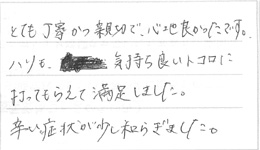 とても丁寧かつ親切で、心地良かったです。
ハリも、気持ち良いトコロに
打ってもらえて満足しました。
辛い症状が少し和らぎました。